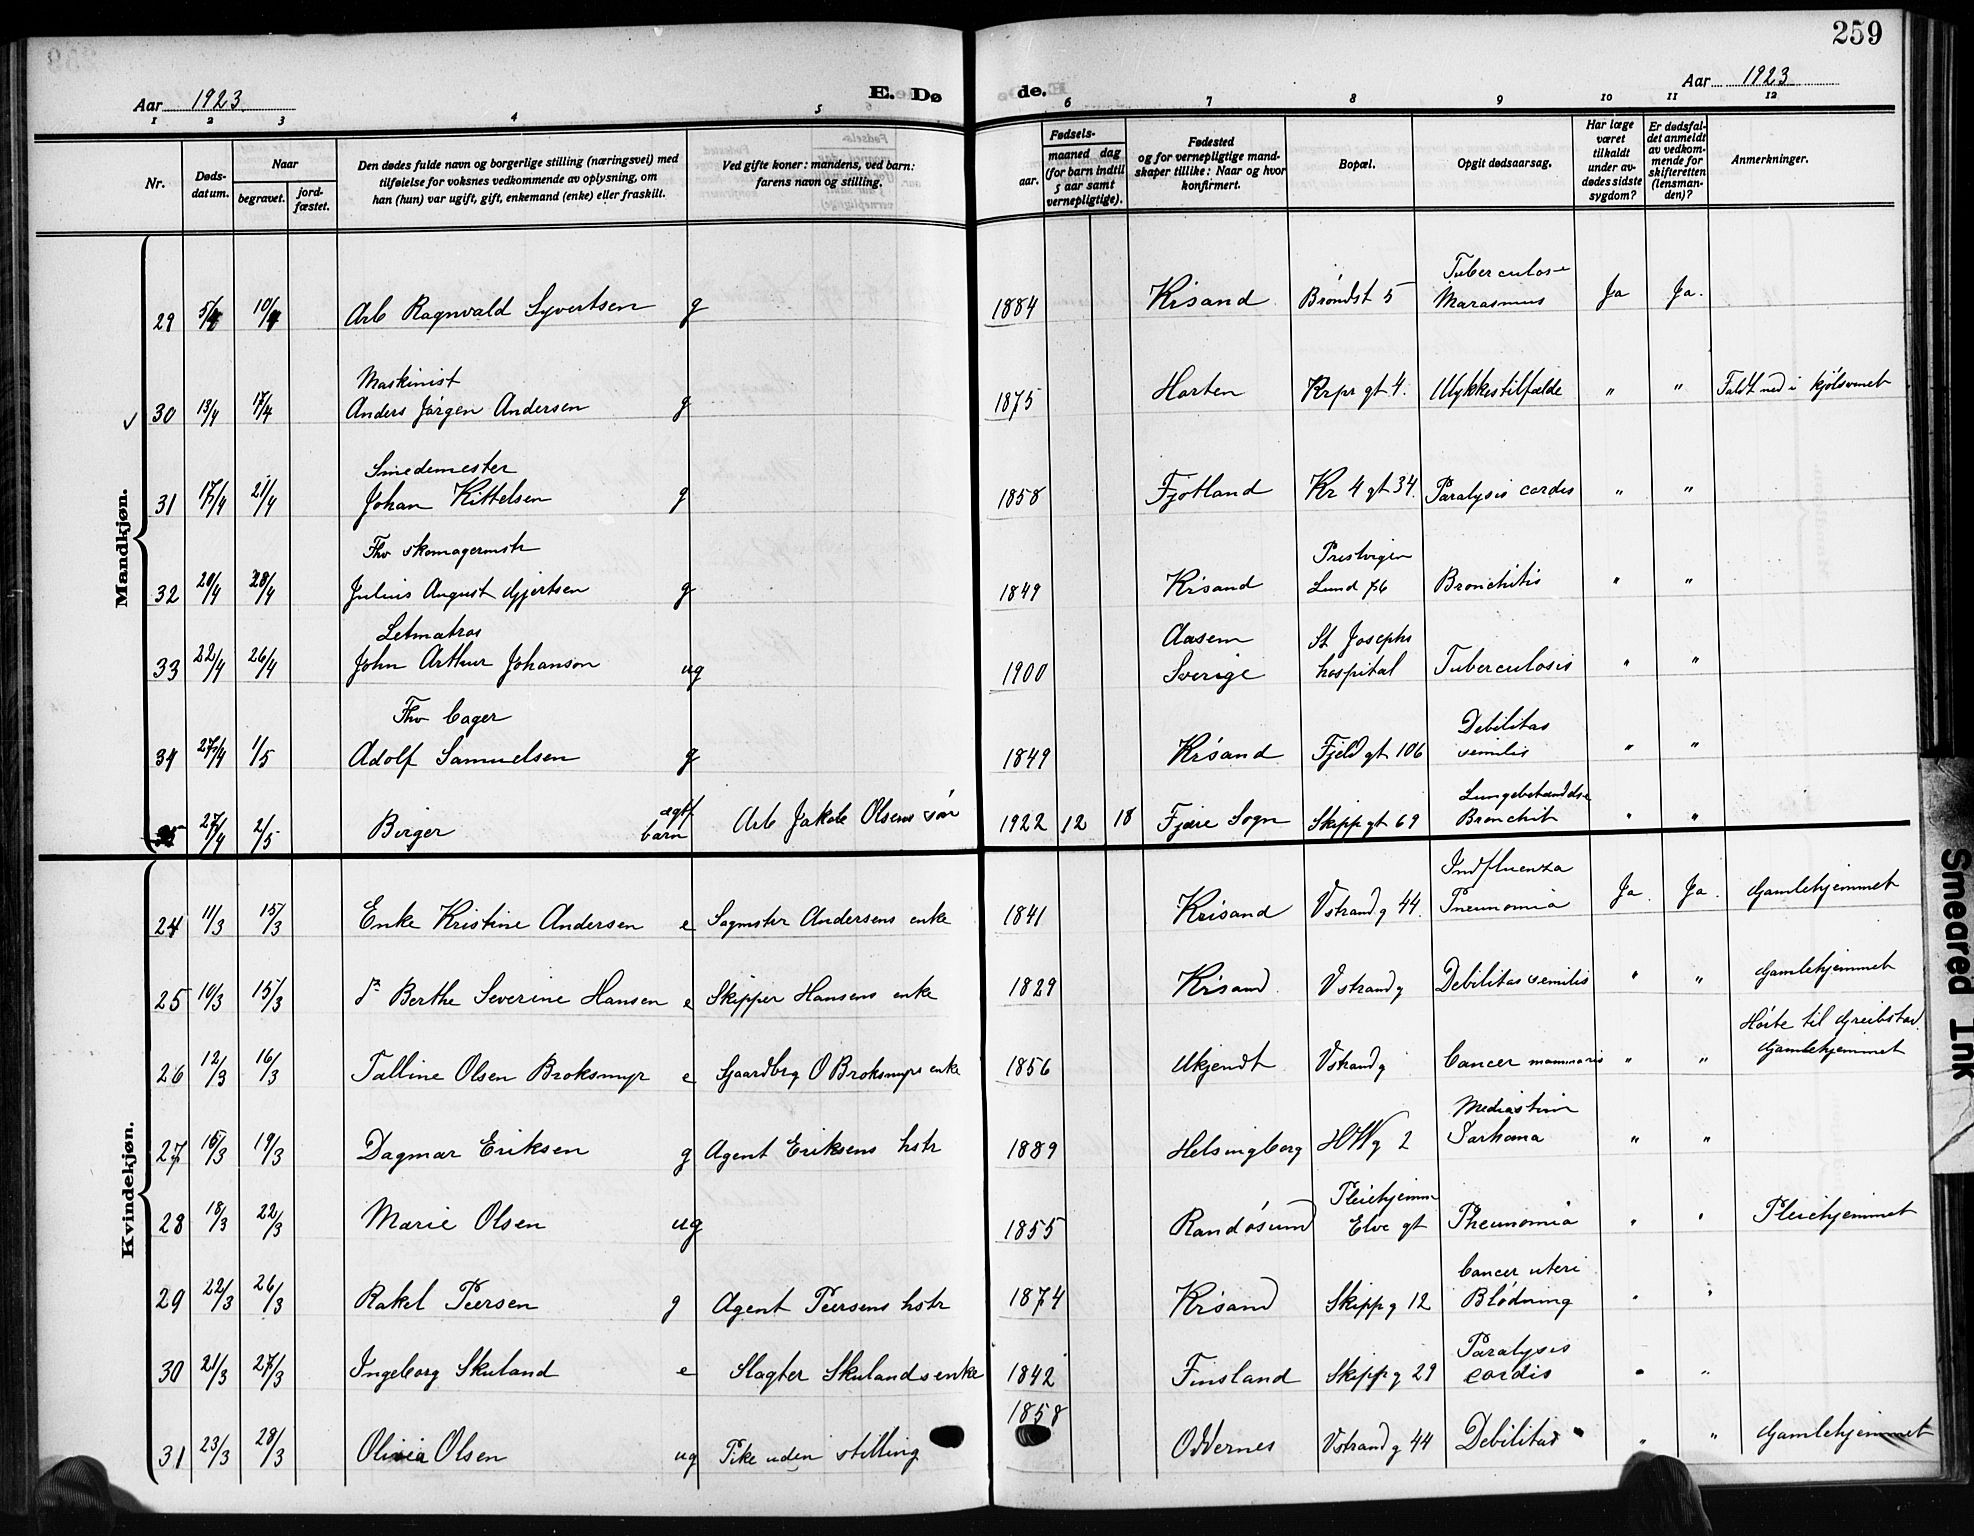 259
Aar 1923
E. Dø
de.
Aar 1923
1 2 3 4 5 6 7 8 9 10 11 12
Nr.
Døds-
datum.
Naar
begravet.
jord-
fæstet.
Den dødes fulde navn og borgerlige stilling (næringsvei) med
tilføielse for voksnes vedkommende av oplysning, om
han (hun) var ugift, gift, enkemand (enke) eller fraskilt.
Ved gifte koner: mandens, ved barn:
farens navn og stilling.
Fødsels-
aar.
maaned dag
(for barn indtil
5 aar samt
vernepligtige).
Fødested
og for vernepligtige mand-
skaper tillike: Naar og hvor
konfirmert.
Bopæl.
Opgit dødsaarsag.
Har læge
været
tilkaldt
under av-
dødes sidste
sygdom?
Er dødsfal-
det anmeldt
av vedkom-
mende for
skifteretten
(lensman-
den)?
Anmerkninger.
Mandkjøn.
Tuberculose
29 5/4 10/4 Arb Ragnvald Syvertsen g 1884 Krsand Brøndst 5 Marasmus Ja Ja.
Maskinist
30 13/4 17/4 Anders Jørgen Andersen g 1875 Horten Krpr gt 4. Ulykkestilfælde " " Faldt ned i kjølvannet
Smedemester
31 17/4 21/4 Johan Kittelsen g 1858 Fjotland Kr 4 gt 34. Paralysis cordis " "
Fhv skomagermstr Prestvigen
32 20/4 28/4 Julius August Gjertsen g 1849 Krsand Lund 76 Bronchitis " "
Letmatros Aasem St Josephs
33 22/4 26/4 John Arthur Johanson ug 1900 Sverige hospital Tuberculosis " "
Fhv bager Debilitas
34 27/4 1/5 Adolf Samuelsen g 1849 Krsand Fjeld gt 106 senilis " "
ægtf Lungebetændelse
35 27/4 2/5 Birger barn Arb Jakob Olsens søn 1922 12 18 Fjære Sogn Skippgt 69 Bronchit " "
Kvindekjøn.
Indfluenza
24 11/3 15/3 Enke Kristine Andersen e Sagmstr Andersens enke 1841 Krisand Vstrand g 44. Pneumomia Ja. Ja. Gamlehjemmet
25 10/3 15/3 do Berthe Severine Hansen e Skipper Hansens enke 1829 Krsand. Vstrand g Debilitas senilis " " Gamlehjemmet
Hørte til Greibstad
26 12/3 16/3 Talline Olsen Broksmyr e Gaardbrg O Broksmyrs enke 1856 Ukjendt Vstrand g Cancer mammaris " " Gamlehjemmet
Mediastim
27 15/3 19/3 Dagmar Eriksen g Agent Eriksens hstr 1889 Helsingborg HWg 2 Sarkoma " "
Pleiehjemm
28 18/3 22/3 Marie Olsen ug 1855 Randøsund Elve gt Pneunomia " " Pleiehjemmet
Cancer uteri
29 22/3 26/3 Rakel Peersen g Agent Peersens hstr 1874 Krsand Skipp g 12 Blødning " "
Paralysis
30 21/3 27/3 Ingeborg Skuland e Slagter Skulands enke 1842 Finsland Skipp g 29 cordis " "
1858
31 23/3 28/3 Olivia Olsen ug Pike uden stilling Oddernes Vstrand g 44 Debilitas " " Gamlehjemmet
Smeared Ink